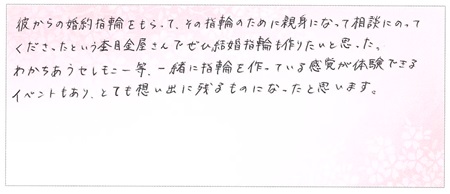 彼からの婚約指輪をもらって、その指輪のために親身になって相談にのって
くださったという杢目金屋さんでぜひ結婚指輪も作りたいと思った。
わかちあうセレモニー等、一緒に指輪を作っている感覚が体験できる
イベントもあり、とても想い出に残るものになったと思います。